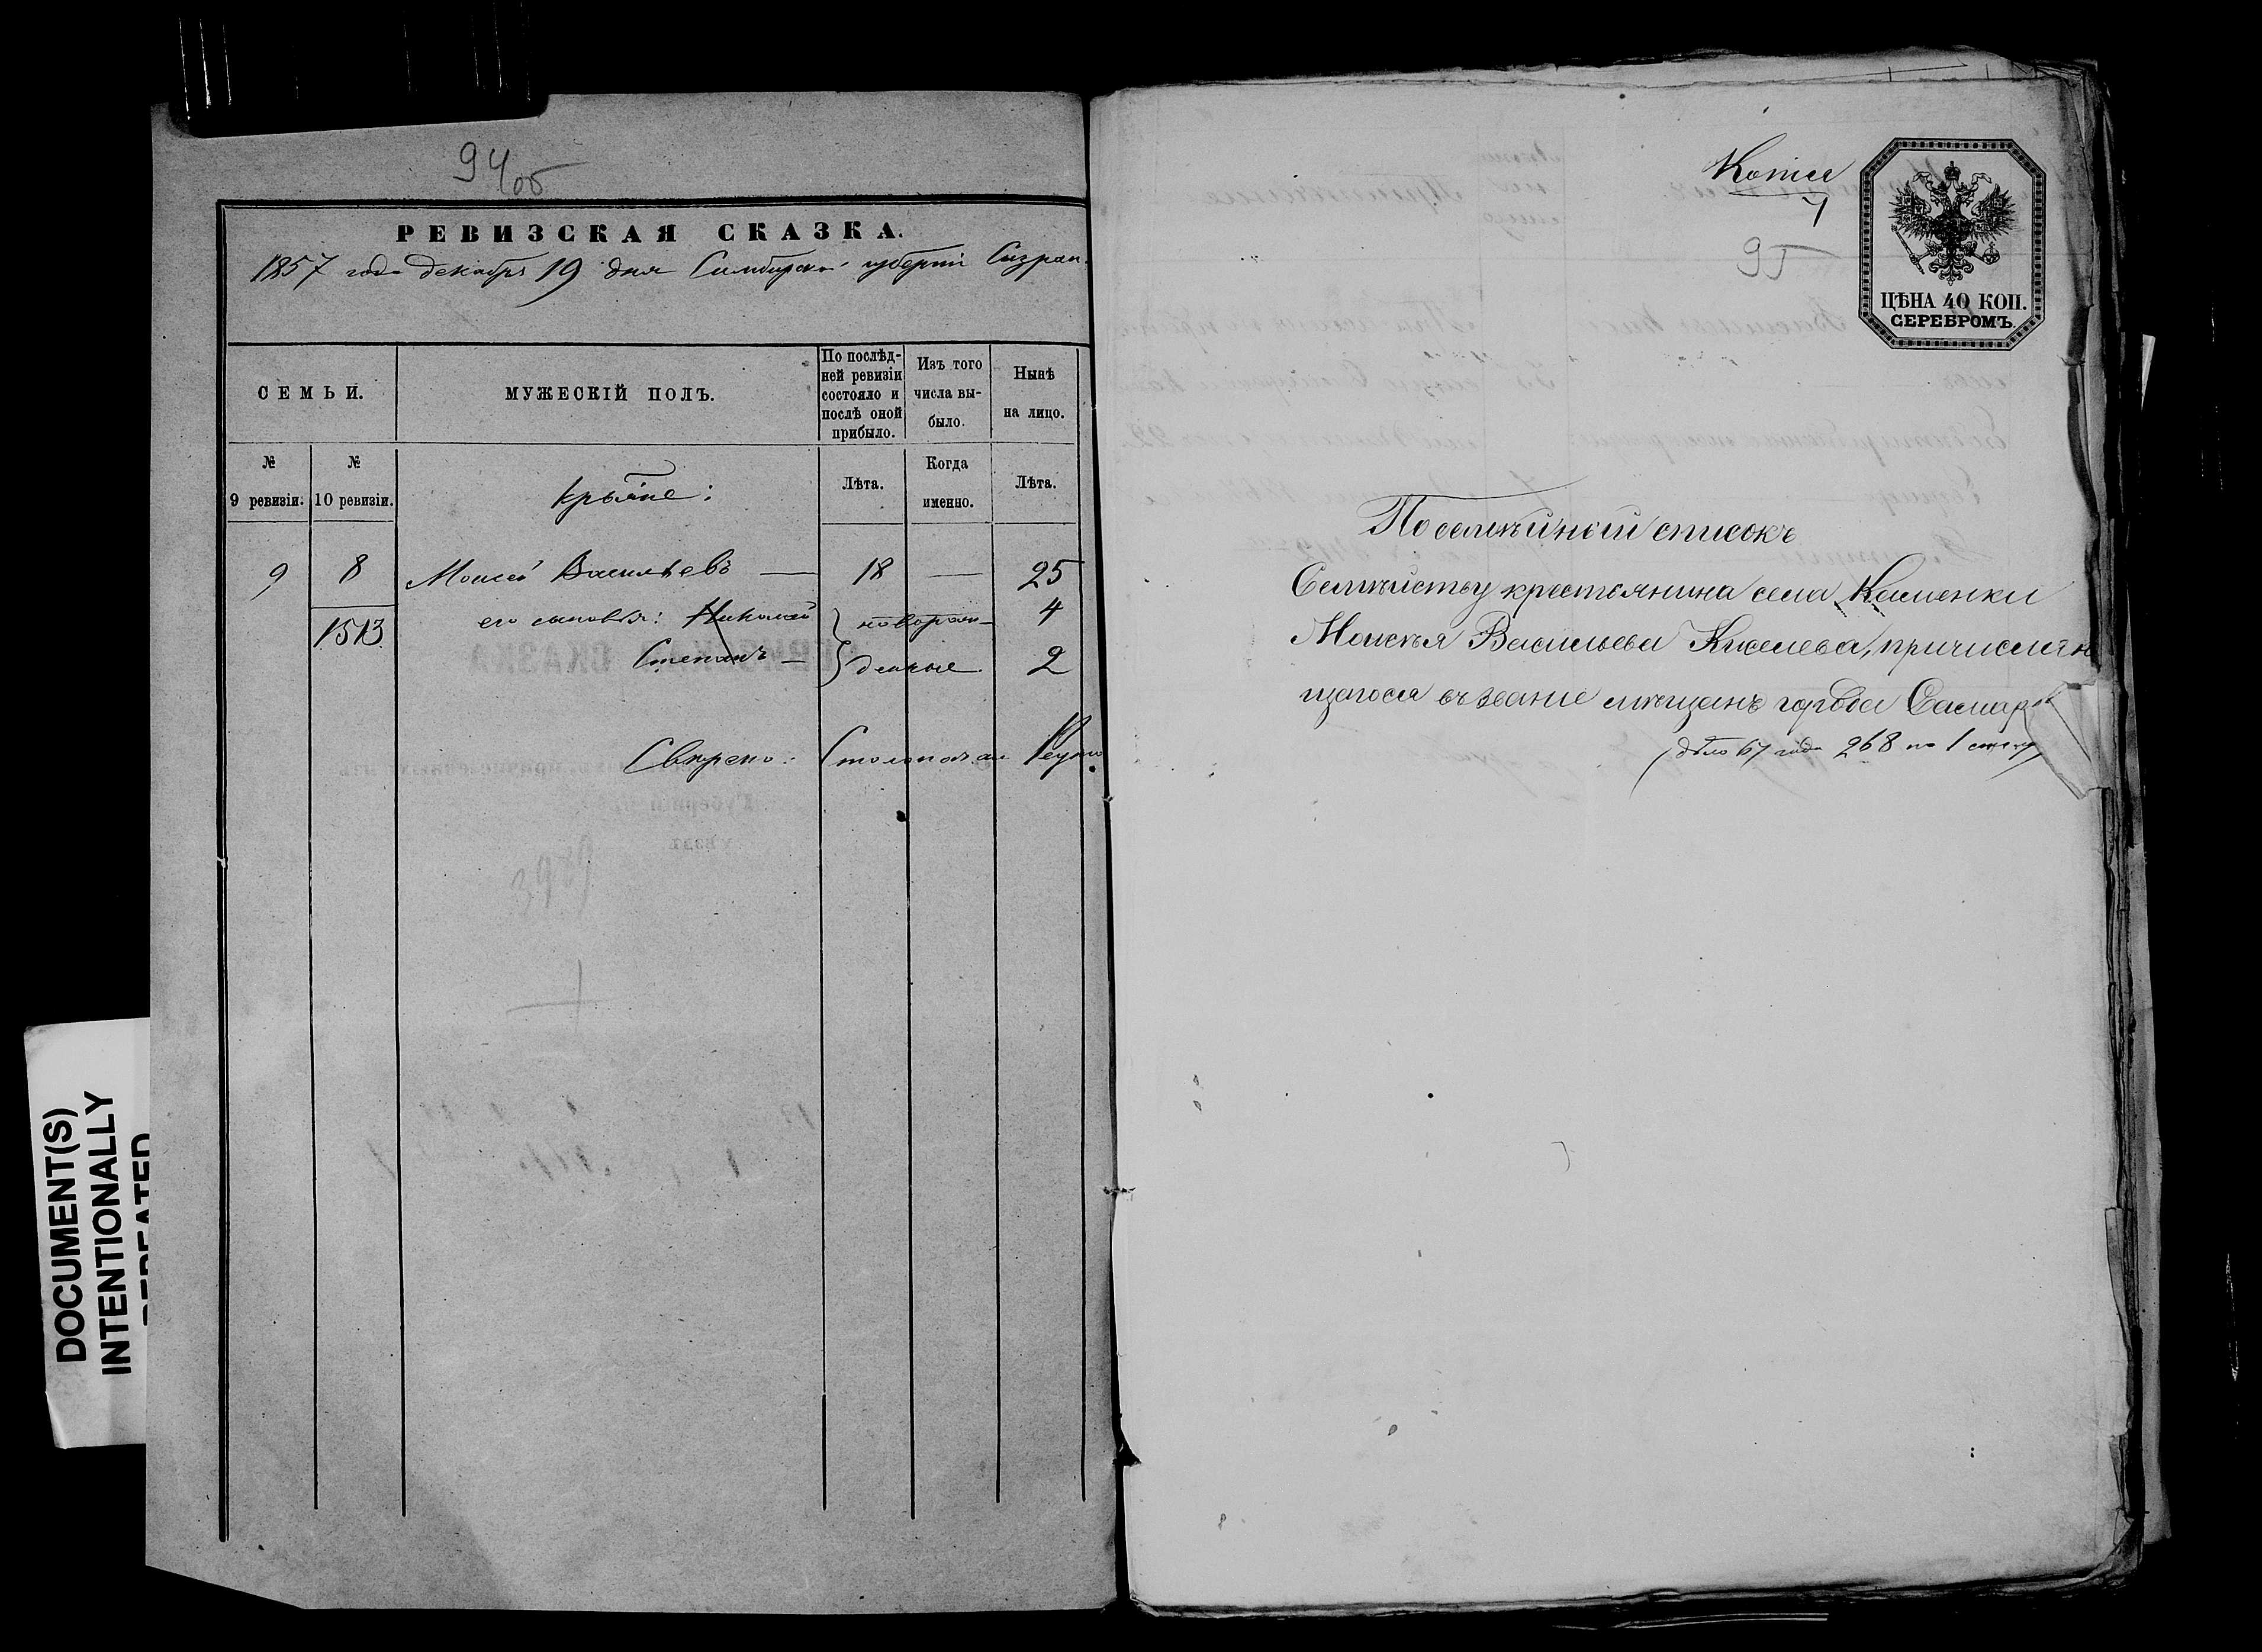 94об
РЕВИЗСКАЯ СКАЗКА.
1857 года декабря 19 дня Симбирской губерніи Сызран
СЕМЬИ.
МУЖЕСКІЙ ПОЛЪ.
По послѣд-
ней ревизіи
состояло и
послѣ оной
прибыло.
Изъ того
числа вы-
было.
Нынѣ
на лицо.
№
9 ревизіи.
№
10 ревизіи.
крьяне:
Лѣта.
Когда
именно.
Лѣта.
9 8 Моисей Васильевъ — 18 — 25
его сыновья: Николай новорож- 4
1513
Степанъ — денные 2
Свѣрено: Столоначал
DOCUMENT(S)
INTENTIONALLY
REPEATED
Копія
95
ЦѢНА 40 КОП.
СЕРЕБРОМЪ.
Посемѣйный списокъ
Семѣйству крестьянина села Каменки
Моисѣя Васильева Киселева, причисляю
щагося въ званіе мѣщанъ города Самары
(дѣло 67 года 268 по 1 столу)